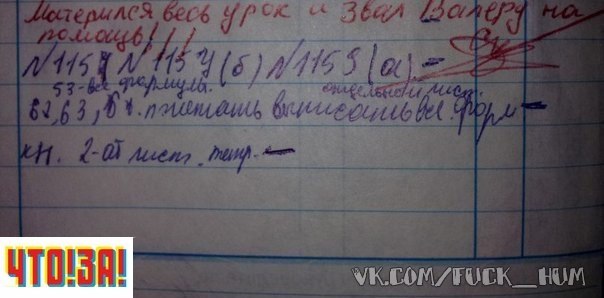 Матерился весь урок и звал Валеру на
помощь!!!
№1154 №1154(б) №1159(а) -
53-все формулы. отдельной лист.
62,63, выписать все форм
кн. 2-ой лист. тетр. -
ЧТО!ЗА!
VK.COM/FUCK_HUM